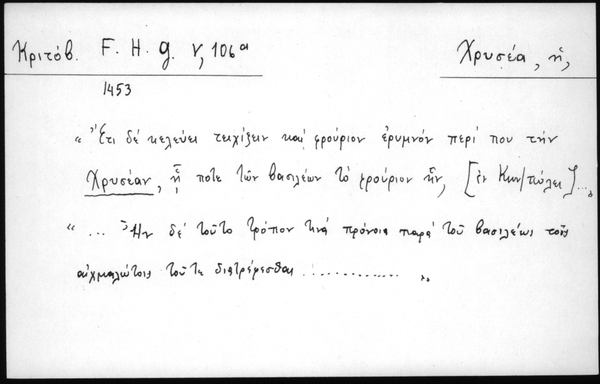 Κριτόβ. F. H. g. V, 106a
Χρυσέα, ἡ,
1453
" Ἔτι δέ κελεύει τειχίζειν καί φρούριον ἐρυμνόν περί που τήν
Χρυσέαν, ᾗ ποτε τῶν βασιλέων τό φρούριον ἦν, [ἐν Κων/πόλει]...,,
" ... Ἦν δέ τοῦτο τρόπον τινά πρόνοια παρά τοῦ βασιλέως τοῖς
αἰχμαλώτοις τοῦ τε διατρέφεσθαι .............. ,,